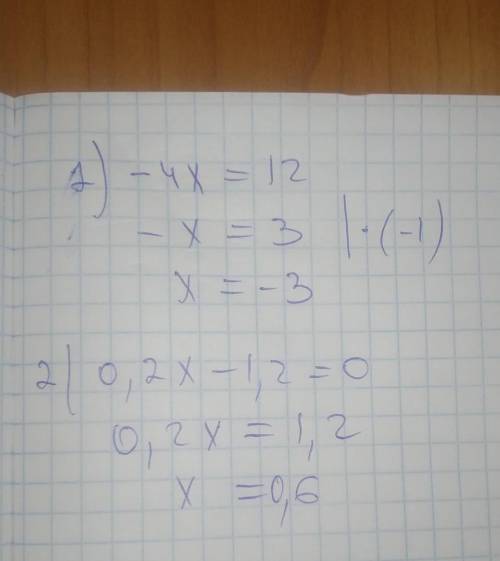 1) -4x = 12
- x = 3 | · (-1)
x = -3
2) 0,2x - 1,2 = 0
0,2x = 1,2
x = 0,6